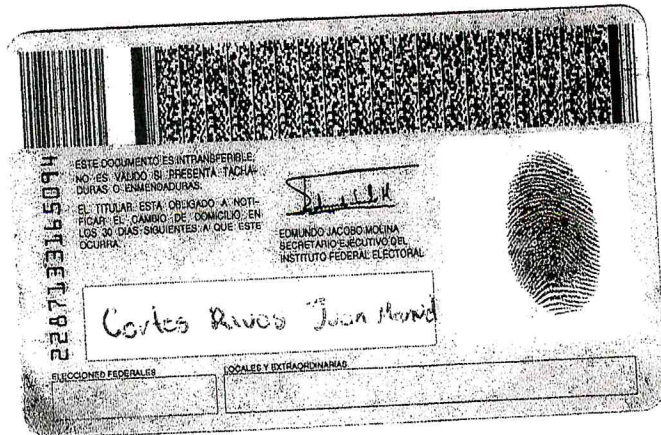 2287133165094
ESTE DOCUMENTO ES INTRANSFERIBLE,
NO ES VALIDO SI PRESENTA TACHA-
DURAS O ENMENDADURAS.
EL TITULAR ESTA OBLIGADO A NOTI-
FICAR EL CAMBIO DE DOMICILIO EN
LOS 30 DIAS SIGUIENTES A QUE ESTE
OCURRA.
EDMUNDO JACOBO MOLINA
SECRETARIO EJECUTIVO DEL
INSTITUTO FEDERAL ELECTORAL
Cortes Juan
ELECCIONES FEDERALES
LOCALES Y EXTRAORDINARIAS